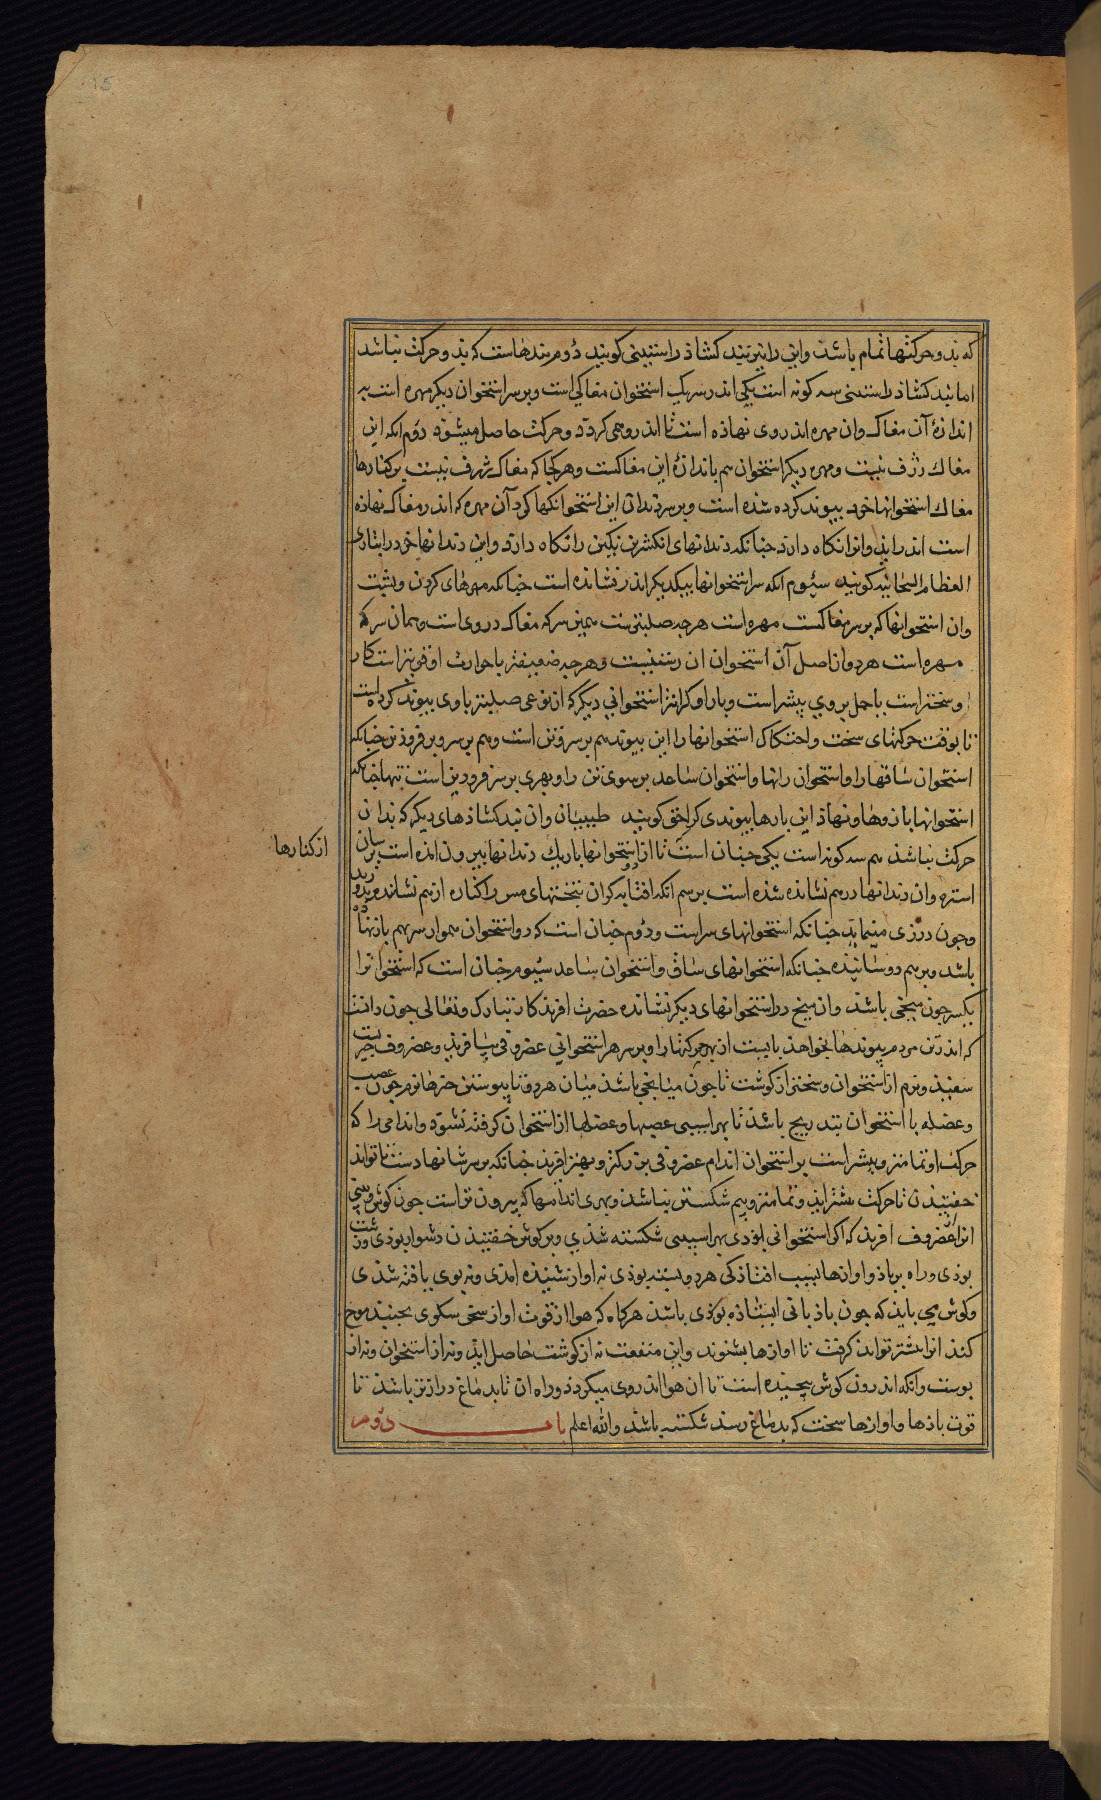 که بذو حرکتها تمام باشذ واین را نیز بند کشاذ راستینی کویند دوم بندهاست که بذو حرکت نباشد
اما بند کشاذ راستینی سه کونه است یکی اندر سر یک استخوان مغاکی است وبر سر استخوان دیکر مهره است به
اندازهٔ آن مغاک وان مهره اندروی نهاذه است تا اندرو همی کردد وحرکت حاصل میشود دوم انکه این
مغاک ژرف نیست ومهره دیکر استخوان هم باندازهٔ این مغاکست وهر کجا که مغاک ژرف نیست بر کنارها
مغاک استخوانها خرد بیوند کرده شذه است وبر سر دندان این استخوانکها کرد آن مهره که اندر مغاک نهاذه
است اندراید وانرا نکاه دارد جنانکه دندانهای انکشرین نکین را نکاه دارد واین دندانها خرد را بتازی
العظام السحانیه کویند سیوم انکه سر استخوانها بیکدیکر اندر نشانده است جنانکه مهرهای کردن وپشت
وان استخوانها که بر سر مغاکست مهره است هرجه صلبتر ست همین سر که مغاک دروی است وهمان سر که
مهره است هردو از اصل آن استخوان ان رستنیست وهرجه ضعیفتر یا حرارت او قویتر است کار
او سختر است یا حمل بروی بیشتر است وبار او کرانتر استخوانی دیکر که از نوعی صلبتر با وی بیوند کرده است
تا بوقت حرکتهای سخت واحتکاک استخوانها را این بیوند هم بر سر وتن است وهم بر سر وبر فروذین جنانکه
استخوان ساقها را واستخوان رانها واستخوان ساعد بر سوی تن را وبهری بر سر فرودین است تنها جنانکه
استخوانها بازوها ونهاذ این بارها بیوندی کر احق کویند طبیبان وان بند کشاذهای دیکر که بدان
حرکت نباشذ هم سه کونه است یکی جنان است تا از استخوانها باریک دندانها بیرون امذه است بر سان
استره وان دندانها درهم نشانده شذه است برسم انکه افتابه کران تختهای مس را کناره از هم نشانده بود
وجون درزی مینماید جنانکه استخوانهای سر است ودوم جنان است که دو استخوان هموار سر بهم باز نهاده
باشد وبرهم دوسانیذه جنانکه استخوانهای ساق واستخوان ساعد سیوم جنان است که استخوان را
یکسر جون میخی باشذ وان میخ در استخوانهای دیکر نشانده حضرت افریذکار تبارک وتعالی جون دانست
که اندر تن مردم بیوندها بخواهذ بایست از بهر حرکتها را وبر سر هر استخوانی غضروفی بیافرید وغضروف جیزیست
سفیذ ونرم از استخوان وسختر از کوشت تا جون میانجی باشذ میان هردو تا پیوستن جیزها نرم جون عصب
وعضله با استخوان بتدریج باشذ تا بهر اسیبی عصبها وعضلها از استخوان کوفته نشود واندامی را که
حرکت او تمامتر وبیشتر است بر استخوان اندام غضروفی بزرکتر وپهنتر افرید جنانکه بر سر شانها دست تا تواند
جفتیدن تا حرکت بیشتر اید وتمامتر وبیم شکستن نباشذ وبهری اندامها که بیرون تر است جون کوش وبینی
انرا غضروف افریذ که اکر استخوانی بوذی بهر اسیبی شکسته شذی وبر کوش خفتیذن دشوار بوذی وزشت
بوذی وراه بر باذ واوازها بسبب افتاذکی هردو بسته بوذی نه اواز شنیذه امذی ونه بوی یافته شذی
وکوش می باید که جون باذبانی ایستاذه بوذی باشذ هرکاه که هوا از قوت اواز سخی سکوی بجنبد موج
کند انرا بیشتر تواند کرفت تا اوازها بشنوند واین منفعت نه از کوشت حاصل اید ونه از استخوان ونه از
پوست وانکه اندرون کوش پیچیده است تا ان هوا اندروی میکردذ وراه ان تا بدماغ درازتر باشذ تا
قوت باذها واوازها سخت که بدماغ رسد شکسته باشذ والله اعلم باب دوم
از کنارها